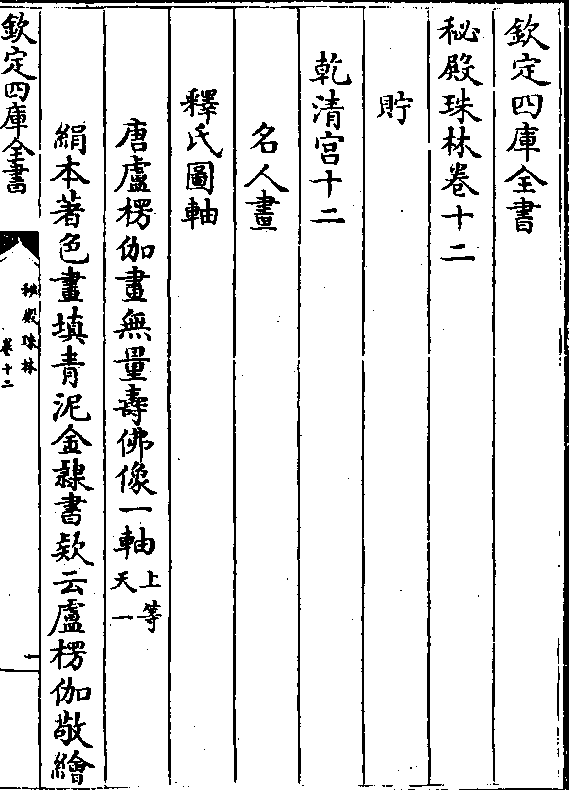 欽定四庫全書
秘殿珠林卷十二
貯
乾清宮十二
名人畫
釋氏圖軸
唐盧楞伽畫無量壽佛像一軸上等天一
絹本著色畫填青泥金隸書欵云盧楞伽敬繪
欽定四庫全書
秘殿珠林
卷十二
一